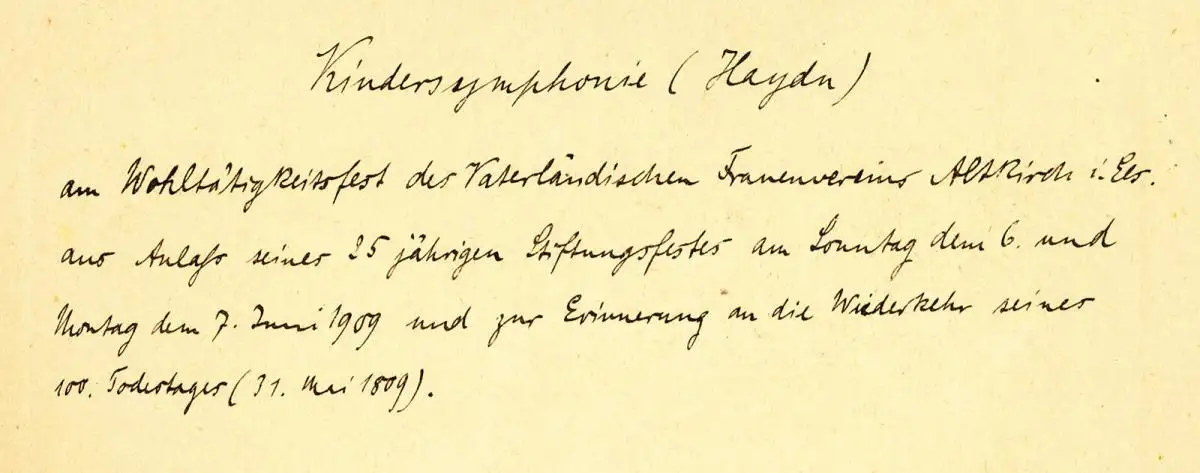 Kindersymphonie (Haydn)
am Wohltätigkeitsfest des Vaterländischen Frauenvereins Altkirch i. Els.
aus Anlaß seines 25 jährigen Stiftungsfestes am Sonntag dem 6. und
Montag dem 7. Juni 1909 und zur Erinnerung an die Wiederkehr seines
100. Todestages (31. Mai 1809).